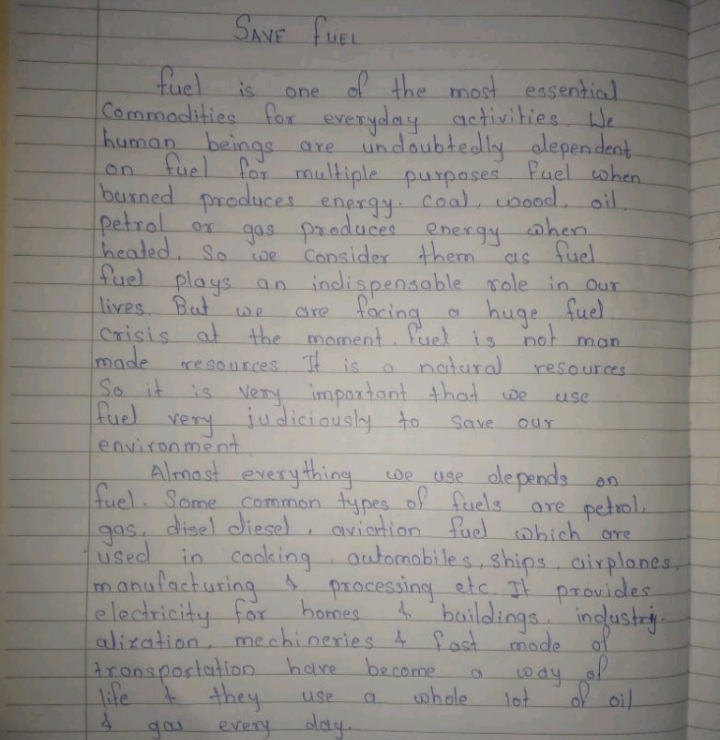 SAVE FUEL
fuel is one of the most essential
Commodities for everyday activities. We
human beings are undoubtedly dependent
on fuel for multiple purposes. Fuel when
burned produces energy. Coal, wood, oil,
petrol or gas produces energy when
heated. So we consider them as fuel.
fuel plays an indispensable role in our
lives. But we are facing a huge fuel
crisis at the moment. Fuel is not man
made resources. It is a natural resources
So it is very important that we use
fuel very judiciously to save our
environment.
Almost everything we use depends on
fuel. Some common types of fuels are petrol,
gas, disel diesel, aviation fuel which are
used in cooking, automobiles, ships, airplanes,
manufacturing & processing etc. It provides
electricity for homes & buildings. industry-
alization, mechineries & fast mode of
transportation have become a way of
life & they use a whole lot of oil
& gas every day.